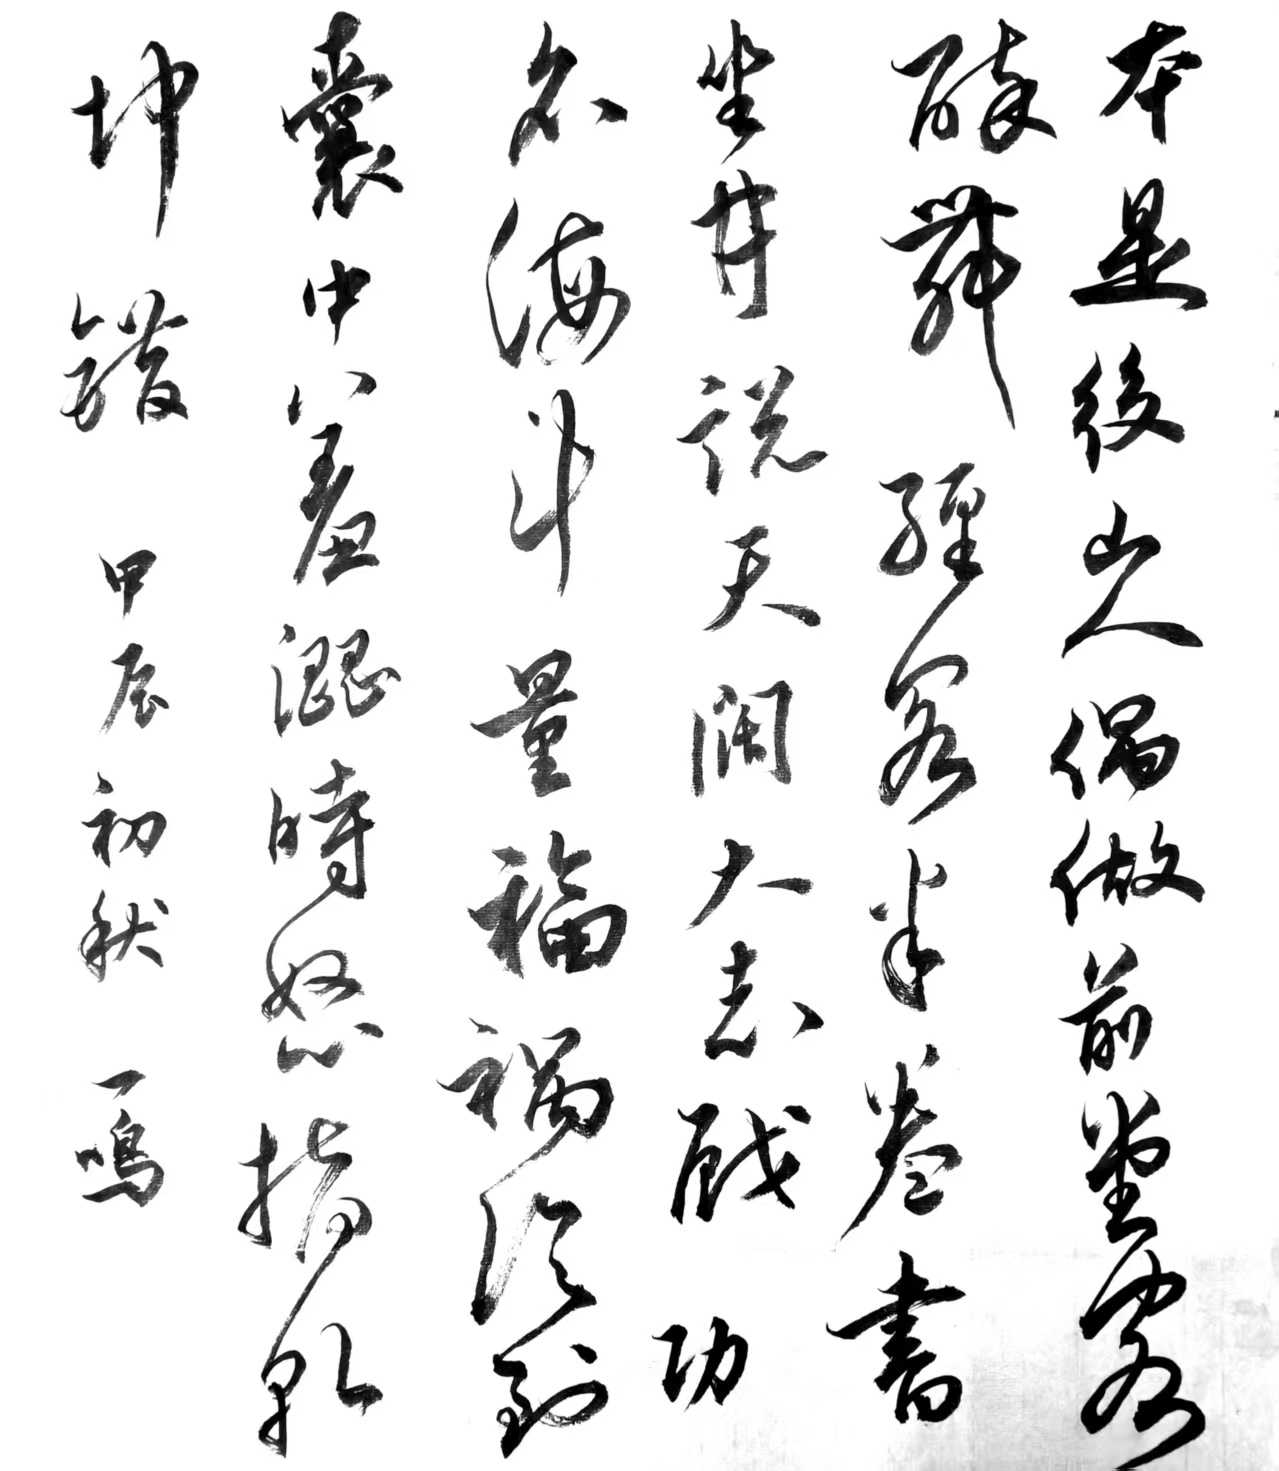 本是後山人偶做前堂客
醉舞經閣半卷書
坐井說天闊大志戲功
名海斗量福禍論到
囊中羞澀時怒指乾
坤錯 甲辰初秋 一鳴